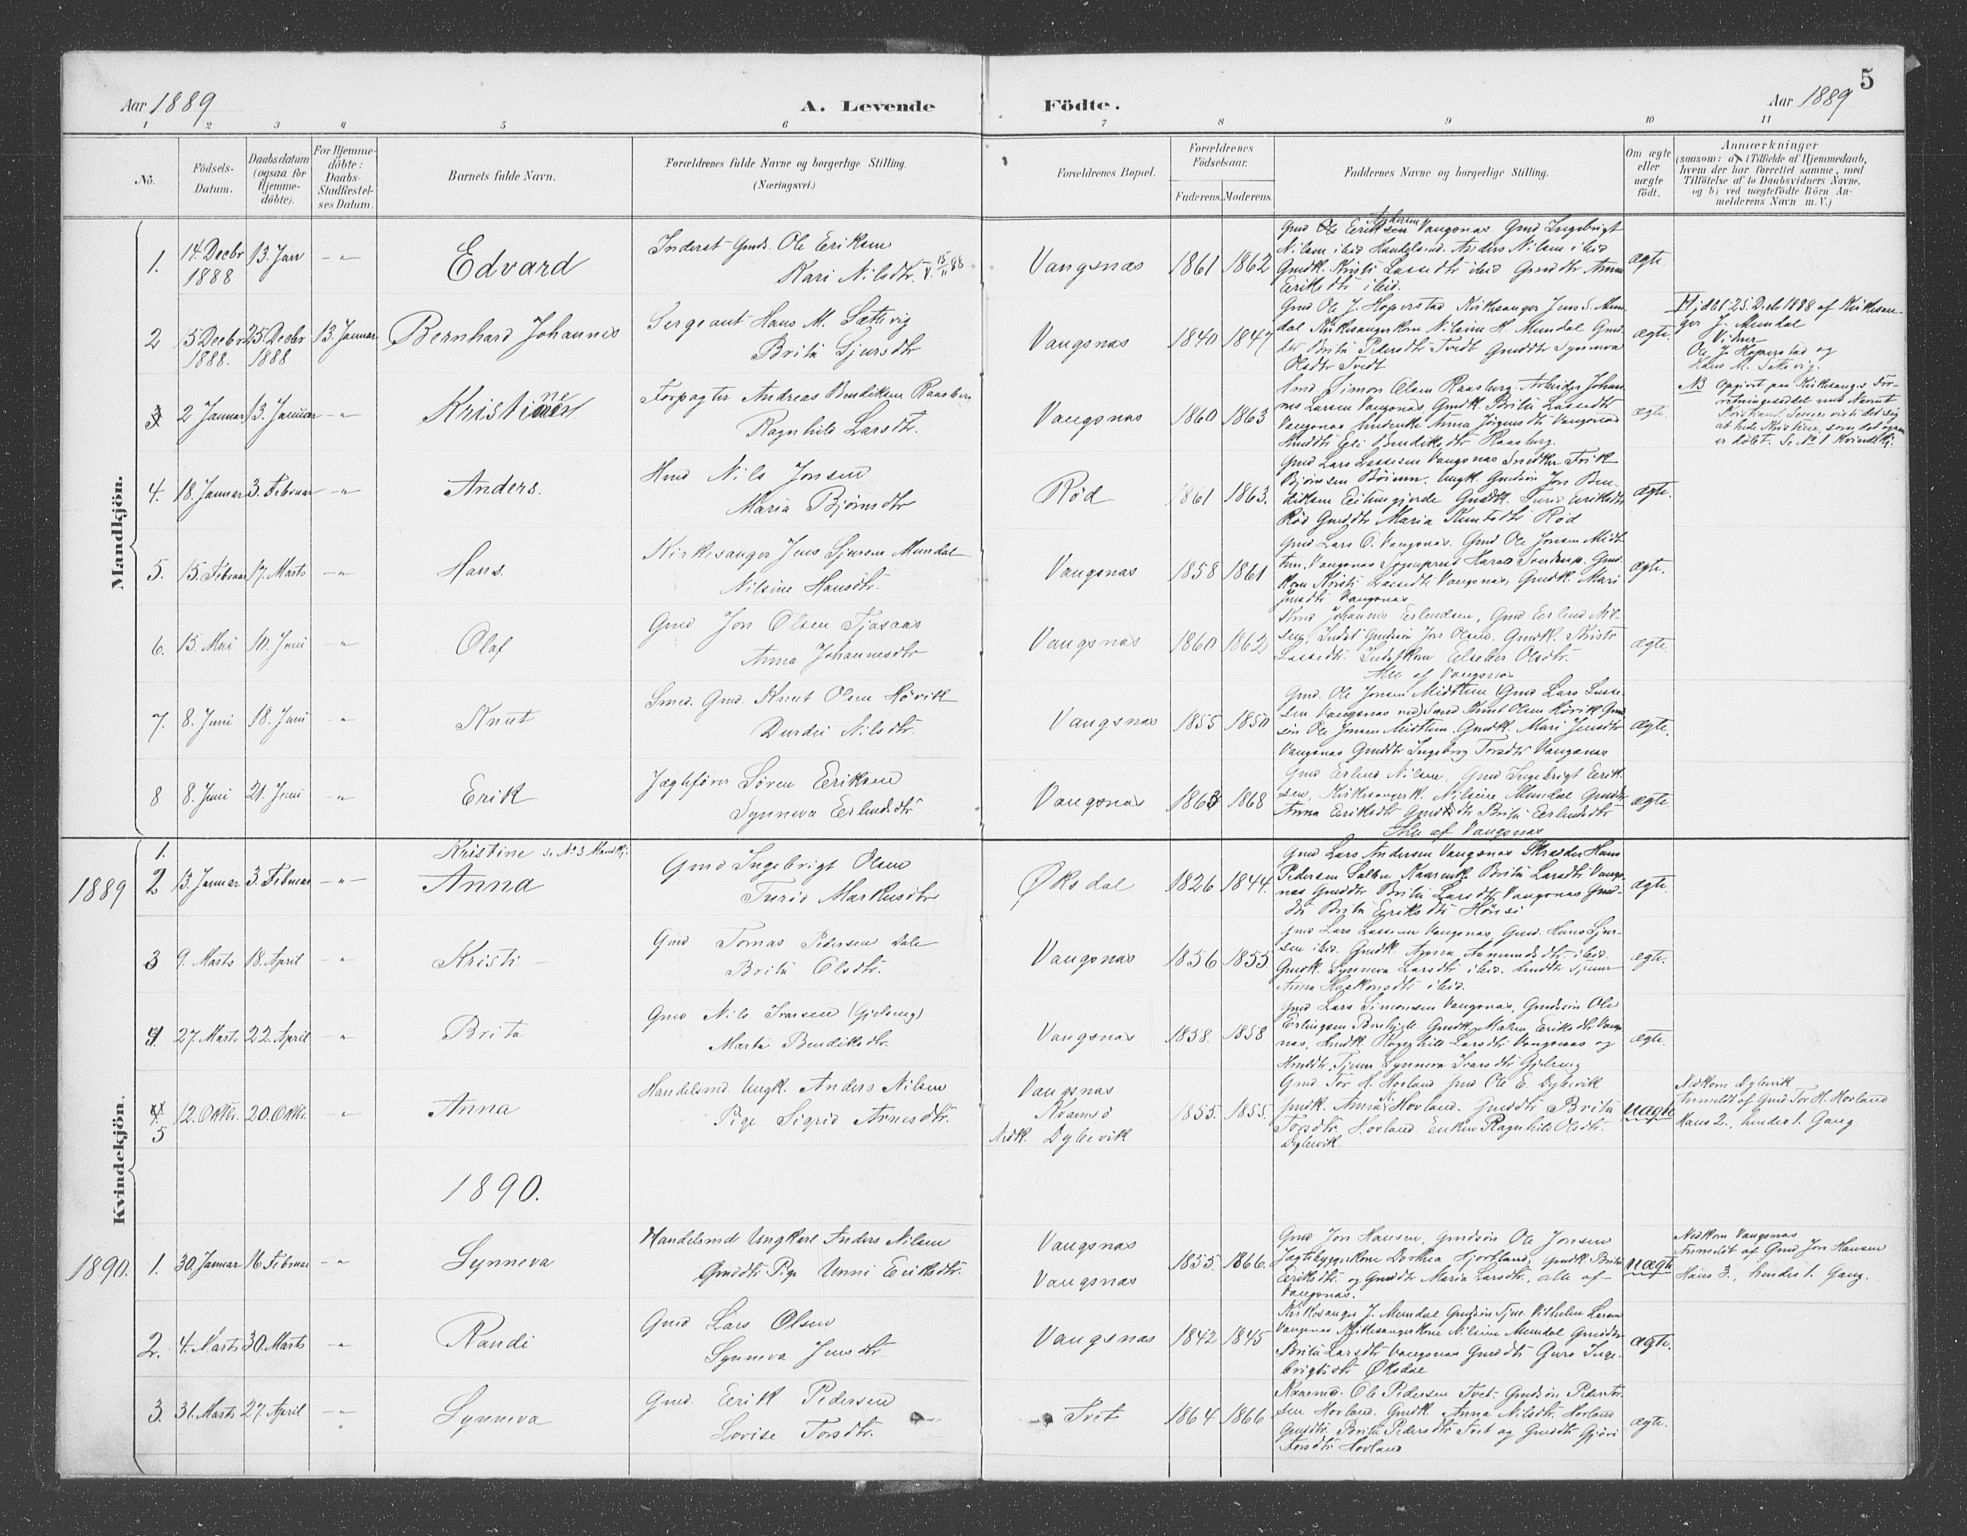 5
Aar 1889
A. Levende
Födte.
Aar 1889
1 2 3 4 5 6 7 8 9 10 11
No.
Födsels-
Datum.
Daabsdatum
(ogsaa for
Hjemme-
döbte).
For Hjemme-
döbte:
Daabs-
Stadfæstel-
ses Datum.
Barnets fulde Navn.
Forældrenes fulde Navne og borgerlige Stilling.
(Næringsvei.)
Forældrenes Bopæl.
Forældrenes
Födselsaar.
Faderens. Moderens.
Faddernes Navne og borgerlige Stilling.
Om ægte
eller
uægte
födt.
Anmærkninger
(saasom: a) i Tilfælde af Hjemmedaab,
hvem der har forrettet samme, med
Tilföielse af to Daabsvidners Navne,
og b) ved uægtefödte Börn An-
melderens Navn m. V.)
Mandkjön.
1. 14. Decbr 1888 13. Jan -„- Edvard
Inderst Gmds. Ole Eriksen
Kari Nilsdtr. V. 15/11 88
Vangsnas 1861 1862
Gmd Ole Eriksen Vangsnas Gmd Ingebrigt
Nilsen ibid Anders Nilsen ibid
Gmdk. Kristi Lassedtr ibid Gmddtr Anna
Eriksdtr ibid.
ægte
2 5 Decbr 1888. 25 Decbr 1888 13. Januar Bernhard Johannes
Sergeant Hans M. Sættevig
Brita Sjursdtr
Vangsnas 1840 1847
Gmd Ole J. Hoperstad Kirkesanger Jens S. Mun-
dal Kirkesangerkone Nilsine H. Mundal Gmd-
dtr Brita Pedersdtr Tvedt Gmddtr Synneva
Olsdtr Tvedt
ægte.
Hjdbt 25. Decb. 1888 af Kirkesan-
ger J. Mundal
Vidner
Ole J. Hoperstad og
Hans M. Sættevig.
3 2 Januar 13. Januar -„- Kristine
Forpagter Andreas Bendiksen Raasberg
Ragnhild Larsdtr.
Vangsnas 1860 1863
Hmd Simon Olsen Raasberg Arbeider Johan-
nes Larsen Vangsnas Gmdk. Brita Lassedtr
Vangsnas Anna Jørgensdtr Vangsnas
Hmddtr Eli Bendiksdtr Raasberg.
ægte.
NB opgivet paa Kirkesangers For-
retningsseddel med Navnet
Kristian. Senere viste det sig
at hede Kristine, som det ogsaa
er døbt. Se No 1 Kvindekj.
4. 18. Januar 3. Februar -„- Anders.
Hmd Nils Jensen
Maria Bjørnsdtr
Rød 1861 1863.
Gmd Lars Lassesen Vangsnas Snedker Erik
Bjørnsen Ungk. Gmdsøn Jon Ben-
diksen Eitungjerde Gmdk. Turid Eriksdtr
Rød Gmddtr Maria Knutsdtr Rød
ægte.
5. 15. Februar 17. Marts -„- Hans.
Kirkesanger Jens Sjursen Mundal
Nilsine Hansdtr.
Vangsnas 1858 1861
Gmd Lars O. Vangsnas. Gmd Ole Jensen Midt-
tun, Vangsnas Sogneprest Harald Gmd-
kone Kristi Lassedtr Vangsnas, Gmdk. Mari
Jensdtr Vangsnas
ægte.
6. 15. Mai 10. Juni „ Olaf
Gmd Jon Olsen Tjøsaas
Anna Johannesdtr
Vangsnas 1860 1862
Kmd Johannes Erlendsen, Gmd Erlend Nil-
sen, Indst Gmdsøn Jon Olsen. Gmdk. Kristi
Lassedtr. Indstkone Elseber Olsdtr.
Alle af Vangsnas
ægte.
7. 8. Juni 18. Juni -„- Knut
Smed. Gmd. Knut Olsen Høvik
Durdei Nilsdtr.
Vangsnas 1855 1850
Gmd. Ole Jensen Midttun Gmd Lars Lasse-
sen Vangsnas Smed Knut Olsen Høvik Gmd-
søn Ole Jensen Midttun. Gmdk. Mari Jensdtr
Vangsnas Gmddtr Ingeborg Torsdtr Vangsnas
ægte.
8 8. Juni 21. Juni „ Erik
Jægtefører Søren Eriksen
Synneva Erlendsdtr
Vangsnas 1863 1868
Gmd Erlend Nilsen, Gmd Ingebrigt Erik-
sen, Kirkesangerk. Nilsine Mundal Gmddtr
Anna Eriksdtr Gmddtr Brita Erlendsdtr
Alle af Vangsnas
ægte.
Kvindekjön.
1889
1. Kristine se No 3 Mandkj.
2 13. Januar 3. Februar -„- Anna
Gmd Ingebrigt Olsen
Turid Markusdtr
Øksdal 1826 1844.
Gmd Lars Andersen Vangsnas Skræder Hans
Pedersen Brita Larsdtr Vangs-
nas Gmddtr Brita Larsdtr Vangsnas Gmd-
dtr Brita Eriksdtr
ægte.
3 9. Marts 18. April „ Kristi -
Gmd Tomas Pedersen Dale
Brita Olsdtr.
Vangsnas 1856 1855
Gmd Lars Lassesen Vangsnas, Gmd. Hans Sjur-
sen ibid. Gmdk. Anna Aamundsdtr ibid.
Gmdk. Synneva Larsdtr ibid.
Anna Haakonsdtr ibid.
ægte.
4. 27. Marts 22. April -„- Brita
Gmd Nils Ivarsen (Gjelsvig)
Marta Bendiksdtr
Vangsnas 1858. 1858
Gmd Lars Simonsen Vangsnas, Gmdsøn Ole
Erlingsen Gmdk. Malene Eriksdtr Vangs-
nas, Hmdk. Ragnhild Larsdtr Vangsnas og
Hmddtr, Tjener Synneva Ivarsdtr
ægte.
5 12. Oktbr. 20. Oktbr. „ Anna
Handelsmd. Ungk. Anders Nilsen
Pige Sigrid Arnesdtr.
Vangsnas
Kvamsø
Nedk. Dylevik
1855. 1855.
Gmd Tor H. Hovland Gmd Ole E. Dylevik
Gmdk. Anna Hovland. Gmddtr Brita
Torsdtr. Hovland Enken Ragnhild Olsdtr.
Dylevik.
uægte
Nedkom Dylevik
Anmeldt af Gmd Tor H. Hovland
Hans 2., hendes 1. Gang
1890.
1890. 1. 30. Januar 16 Februar -„- Synneva
Handelsmd Ungkarl Anders Nilsen
Gmddtr Pige Unni Eriksdtr.
Vangsnas
Vangsnas
1855. 1866.
Gmd Jon Hansen, Gmdsøn Ole Jonsen
Jægtebyggerkone Dorthea Hjortland, Gmdk Brita
Eriksdtr. og Gmddtr Maria Larsdtr, alle af
Vangsnas.
uægte
Nedkom Vangsnas
Anmeldt af Gmd Jon Hansen
Hans 3., hendes 1. Gang.
2. 4. Marts 30. Marts -„- Randi
Gmd Lars Olsen
Synneva Jensdtr
Vangsnas 1842 1845
Kirkesanger J. Mundal Gmdsøn Vilhelm Larsen
Vangsnas Kirkesangerkone Nilsine Mundal Gmddtr
Brita Larsdtr Vangsnas Gmddtr Guro Inge-
brigtsdtr Øksdal
ægte.
3. 31. Marts 27. April -„- Synneva
Gmd. Erik Pedersen
Lovise Torsdtr.
Tvet 1864 1866
Kaarmd. Ole Pedersen Tvet. Gmdsøn Peder Tor-
sen Hovland. Gmdk. Anna Nilsdtr. Hovland
Gmddtr. Brita Pedersdtr Tvet og Gmddtr Gjøri
Torsdtr Hovland
ægte.